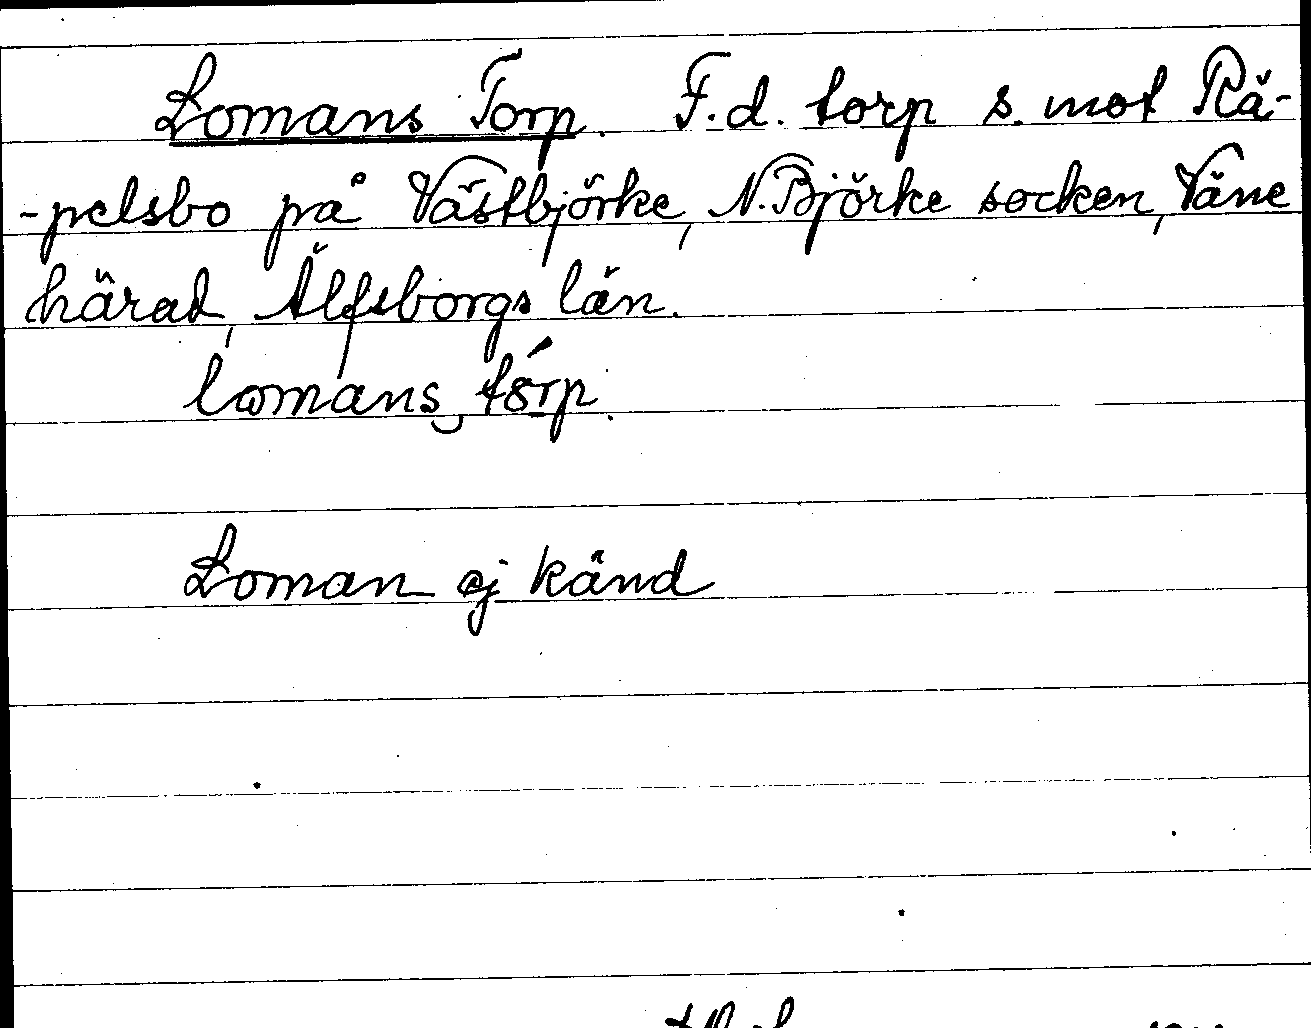 Lomans Torp. F.d. torp s. mot Rä-
-pelsbo på Västbjörke, N. Björke socken, Väne
härad, Älfsborgs län.
lomans‿tórp.
Loman ej känd